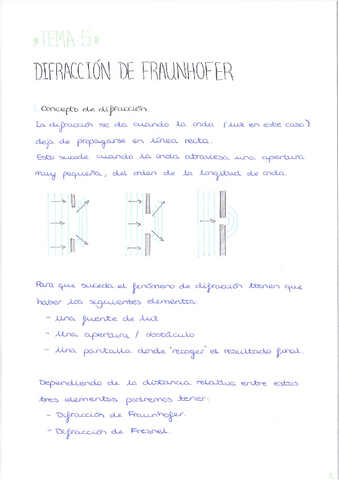 TEMA 5
DIFRACCIÓN DE FRAUNHOFER
1. Concepto de difracción.
La difracción se da cuando la onda (luz en este caso)
deja de propagarse en línea recta.
Esto sucede cuando la onda atraviesa una apertura
muy pequeña, del orden de la longitud de onda.
Para que suceda el fenómeno de difracción tienen que
haber los siguientes elementos:
- Una fuente de luz
- Una apertura / obstáculo
- Una pantalla donde "recoger" el resultado final.
Dependiendo de la distancia relativa entre estos
tres elementos podremos tener:
- Difracción de Fraunhofer.
- Difracción de Fresnel.